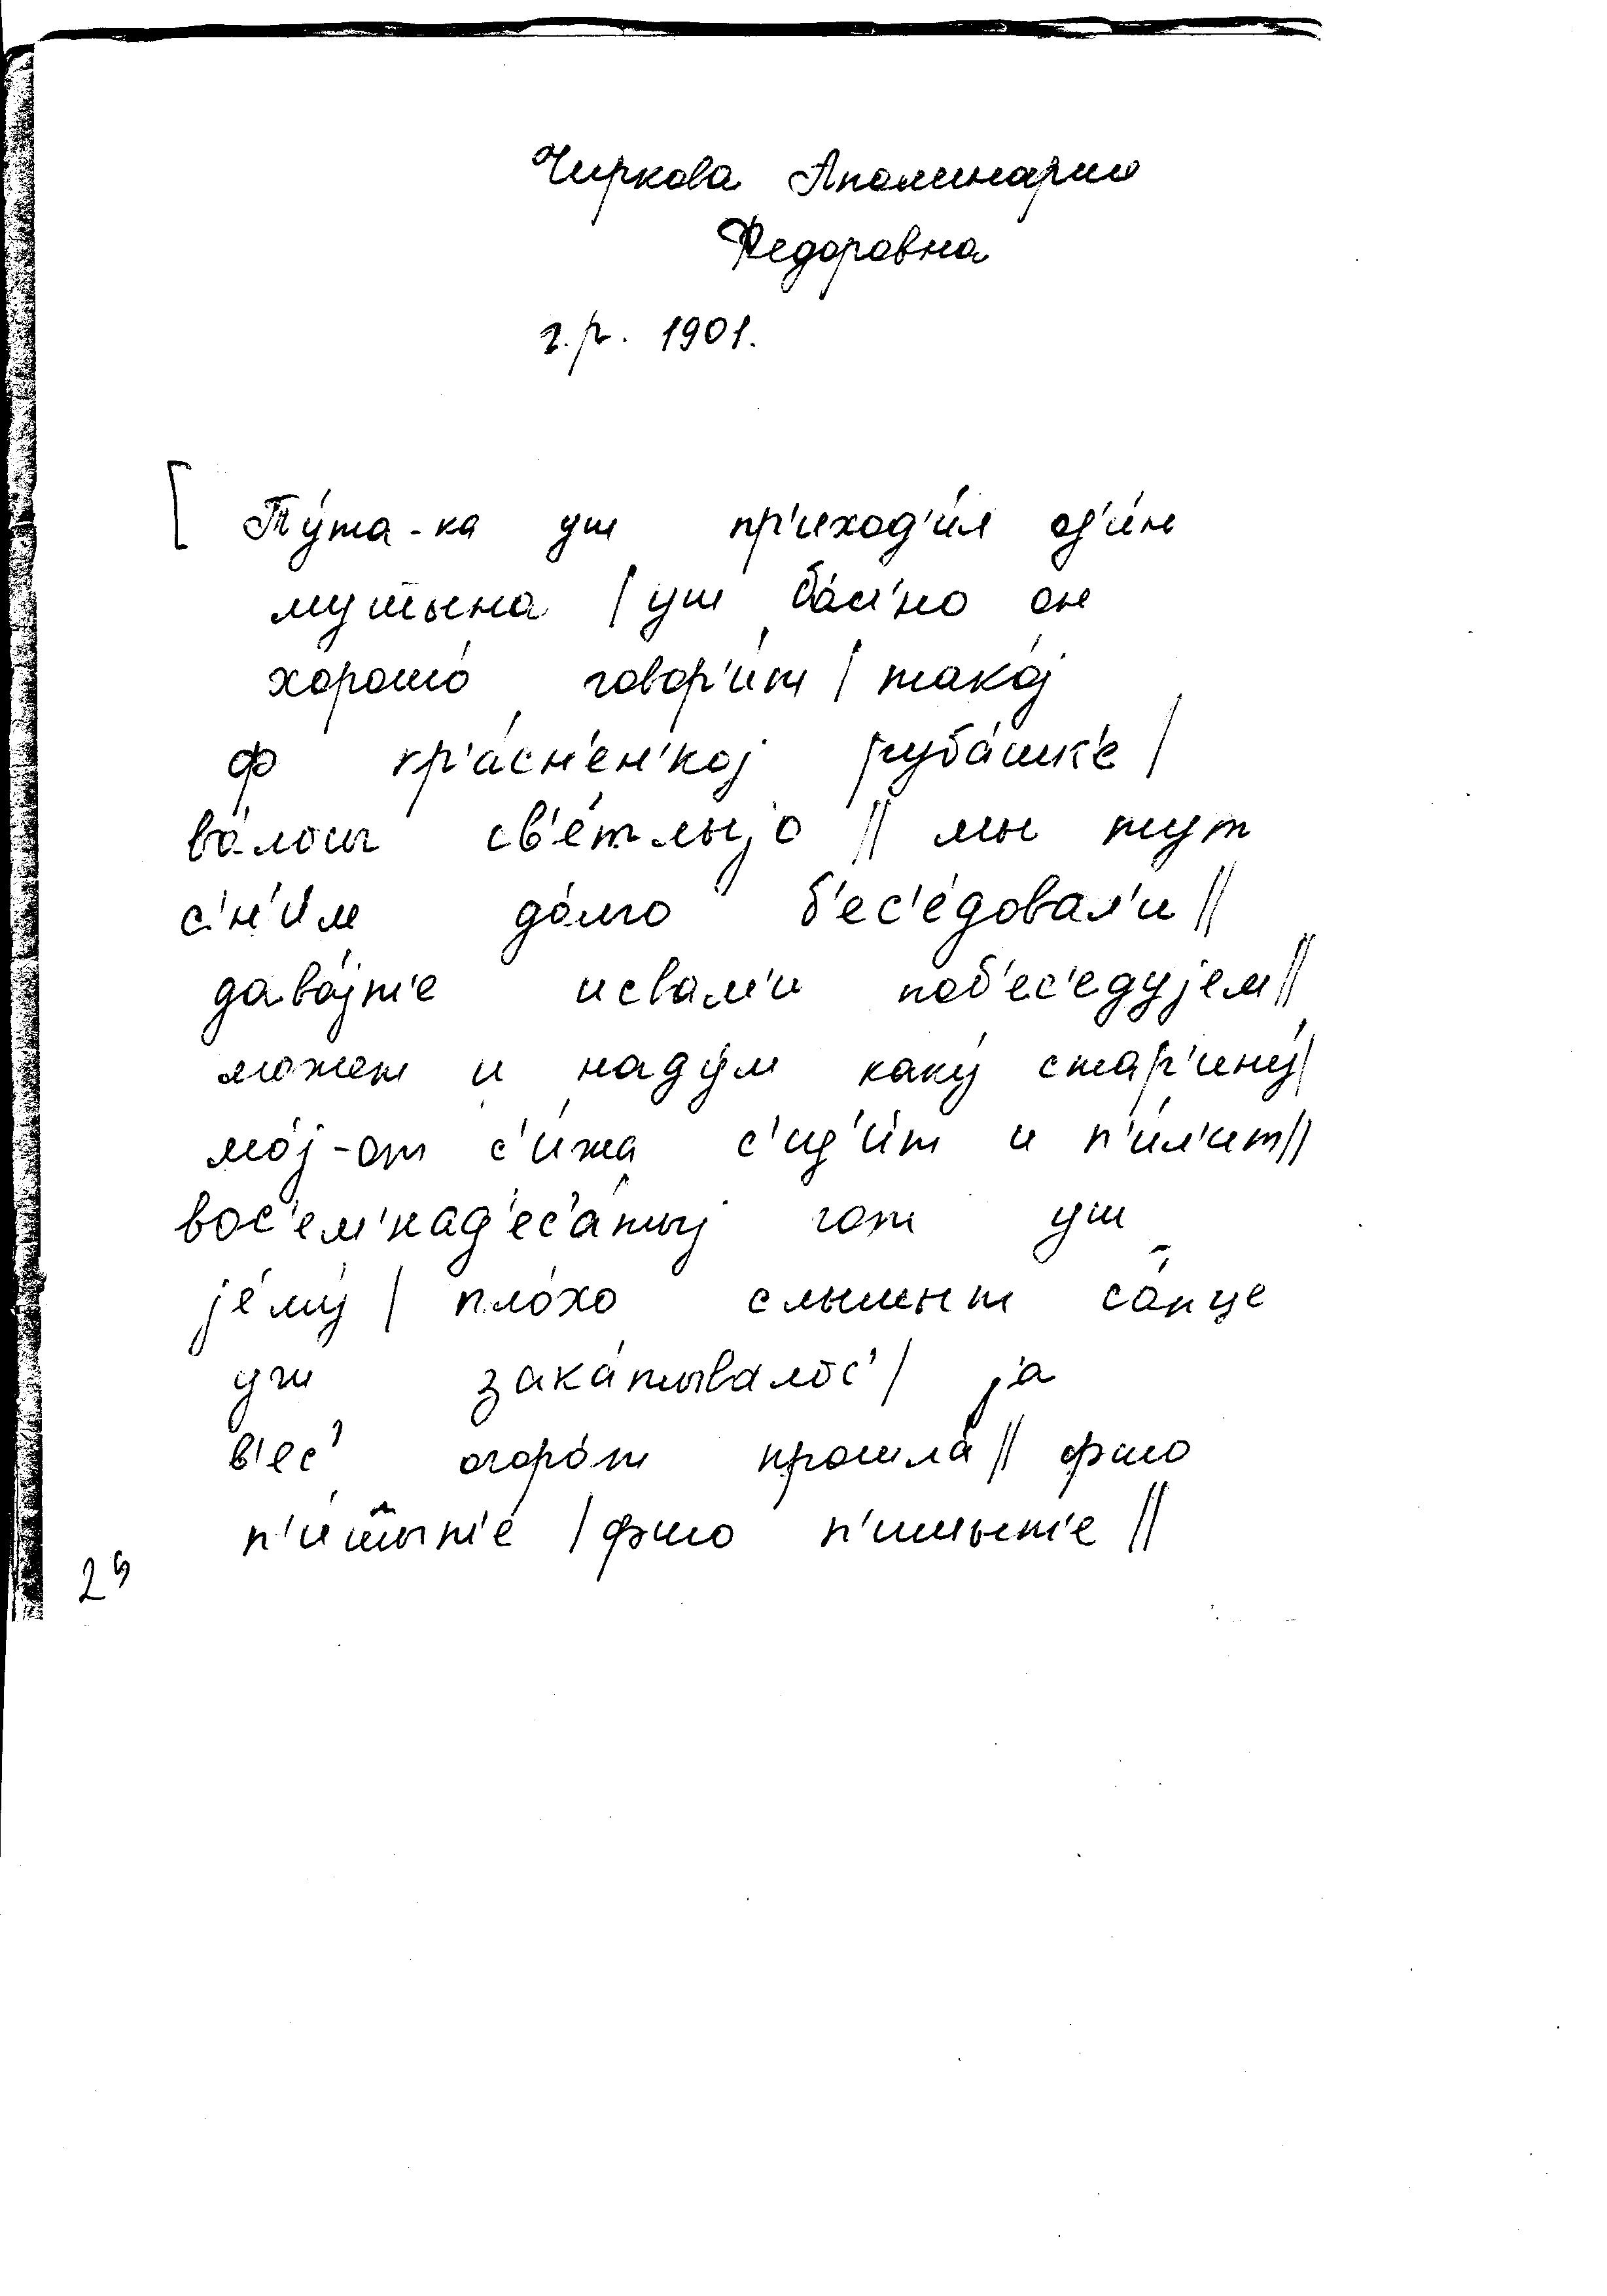 Чиркова Аполинария
Федоровна
г.р. 1901.
[ Ту́та-ка уш пр'иход'и́л од'и́н
мушына / уш ба́с'но он
хорошо́ говор'и́т / тако́j
ф кр'а́сн'ен'коj руба́шк'е /
во́лосы св'е́тлыjо // мы тут
с'н'и́м до́лго б'ес'е́довал'и //
дава́jт'е исвам'и поб'ес'едуjем //
можот и наду́м каку́ стар'ину́ /
мо́j-от с'и́жа с'ид'и́т и п'и́л'ит //
вос'ем'над'ес'а́тыj гот уш
jему́ / пло́хо слышыт со́нце
уш зака́тывалос' / jа
в'ес' огоро́т прошла́ // фшо
п'и́шыт'е / фшо п'ишыт'е //
29